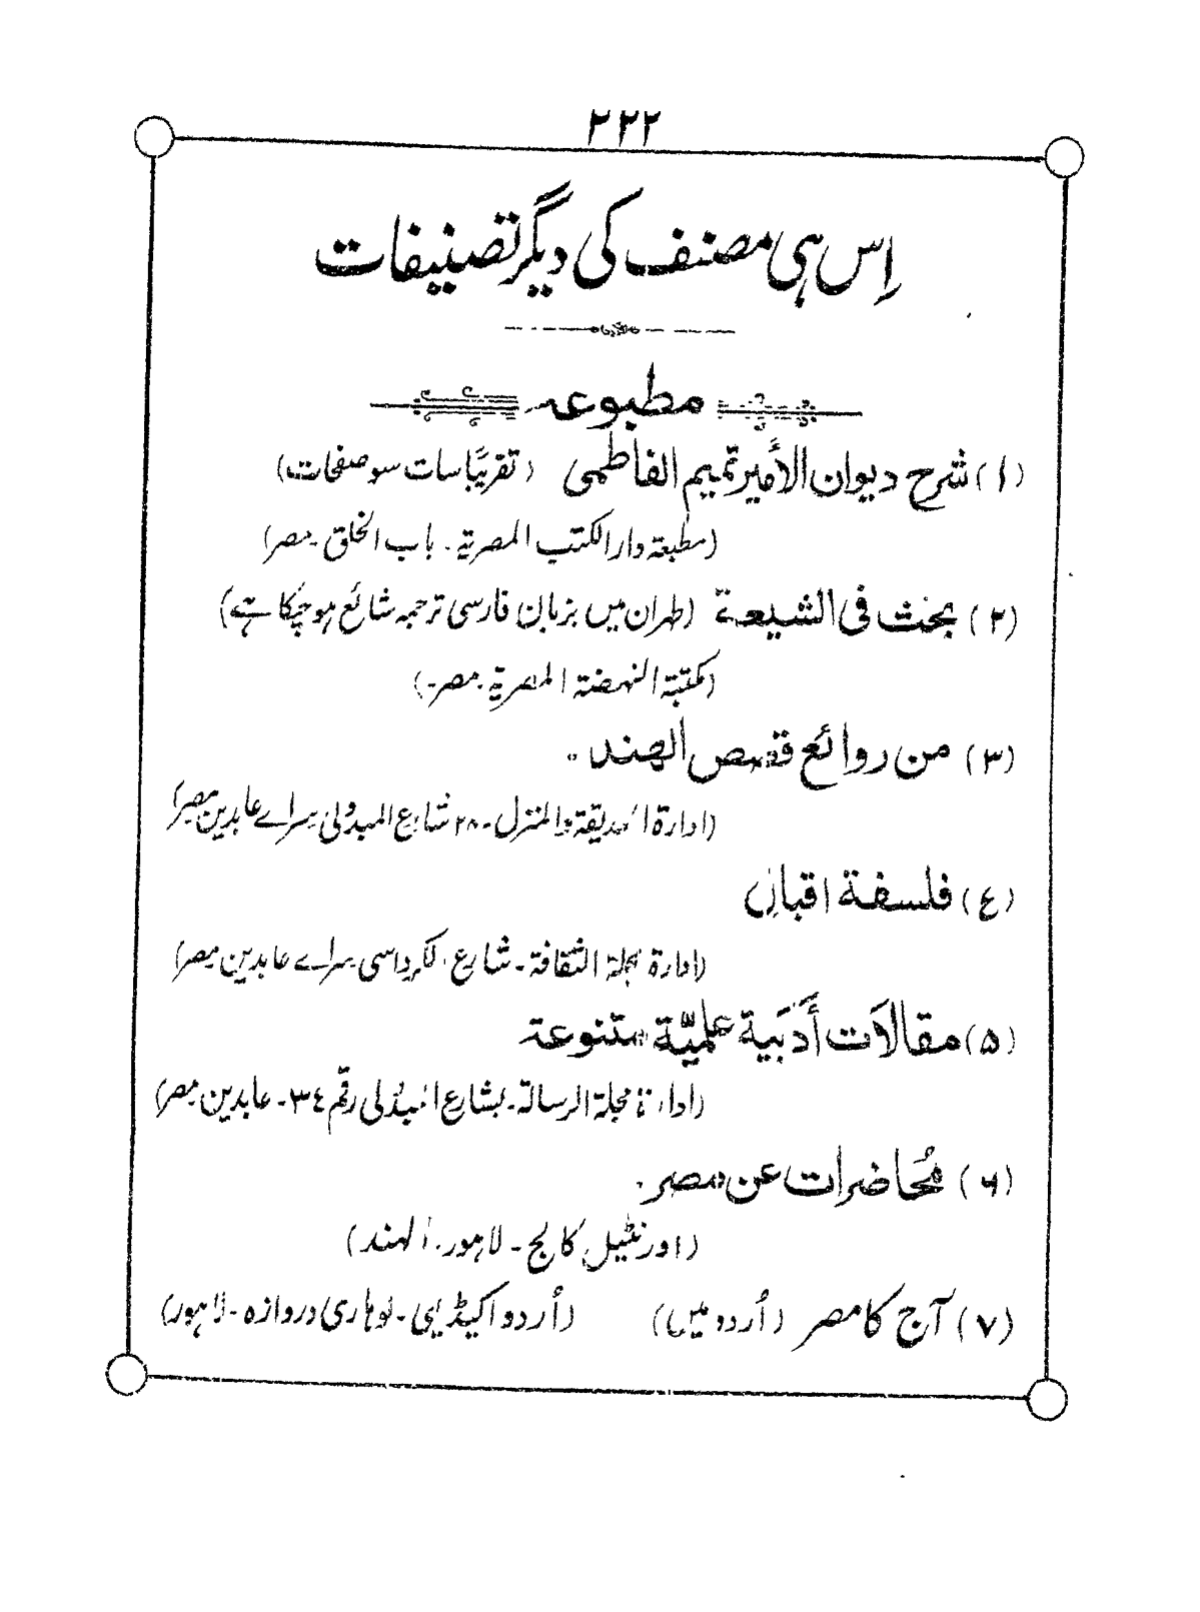 ۲۳۲
اِس ہی مصنف کی دیگر تصنیفات
مطبوعہ
(۱) شرح دیوان الأمیر تمیم الفاطمی (تقریبًا سات سو صفحات)
(مطبعۃ دار الکتب المصریۃ - باب الخلق - مصر)
(۲) بحث فی الشیعۃ (طہران میں بزبان فارسی ترجمہ شائع ہو چکا ہے)
(مکتبۃ النہضۃ المصریۃ - مصر)
(۳) من روائع قصص الهند
(ادارۃ الحدیقۃ والمنزل - ۲۸ شارع المبدولی سراے عابدین مصر)
(٤) فلسفة اقبال
(ادارۃ مجلۃ الثقافۃ - شارع الکرداسی سراے عابدین مصر)
(۵) مقالاَت أَدَبیة علمیّة متنوعة
(ادارۃ مجلۃ الرسالۃ - بشارع المبدُلی رقم ۳٤ - عابدین مصر)
(۶) مُحاضرات عن مصر
(اورنٹیل کالج - لاہور - الہند)
(۷) آج کا مصر (اُردو میں) (اُردو اکیڈیمی - لوہاری دروازہ - لاہور)